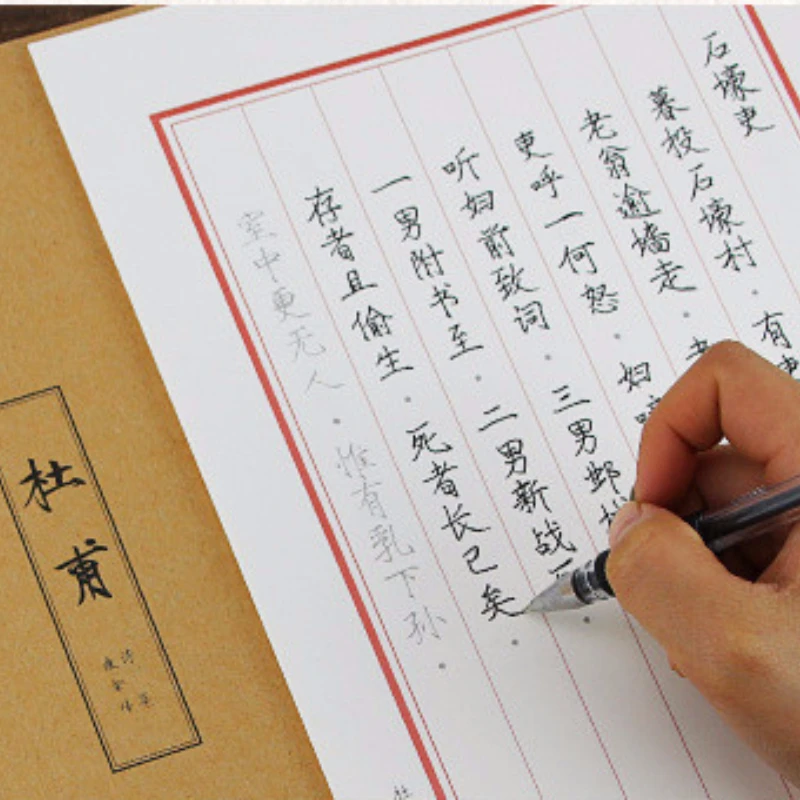 石壕吏
暮投石壕村·有吏
老翁逾墙走·老
吏呼一何怒·妇啼
听妇前致词·三男邺
一男附书至·二男新战
存者且偷生·死者长已矣·
室中更无人·惟有乳下孙·
杜甫